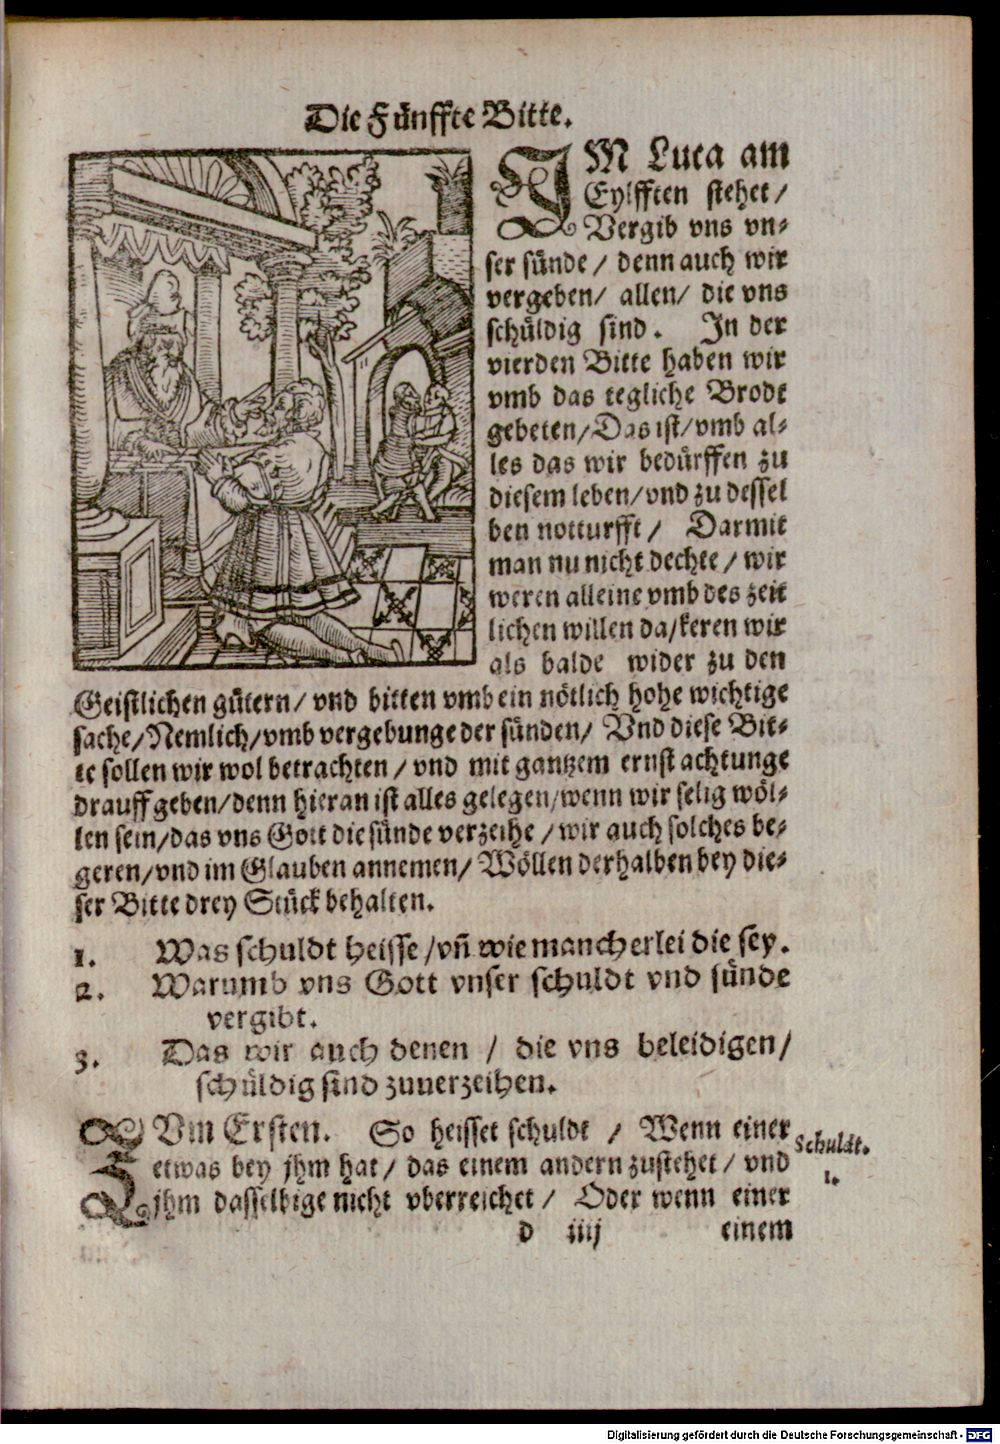 Die Fünffte Bitte.
IM Luca am
Eylfften stehet/
Vergib vns vn⸗
ser sünde / denn auch wir
vergeben/ allen/ die vns
schüldig sind. In der
vierden Bitte haben wir
vmb das tegliche Brodt
gebeten/Das ist/vmb al⸗
les das wir bedürffen zu
diesem leben/vnd zu dessel
ben notturfft / Darmit
man nu nicht dechte / wir
weren alleine vmb des zeit
lichen willen da/keren wir
als balde wider zu den
Geistlichen gütern/ vnd bitten vmb ein nötlich hohe wichtige
sache/Nemlich/vmb vergebunge der sünden/ Vnd diese Bit⸗
te sollen wir wol betrachten / vnd mit gantzem ernst achtunge
drauff geben/denn hieran ist alles gelegen/wenn wir selig wöl⸗
len sein/das vns Gott die sünde verzeihe / wir auch solches be⸗
geren/vnd im Glauben annemen/ Wöllen derhalben bey die⸗
ser Bitte drey Stück behalten.
1. Was schuldt heisse /vn̄ wie mancherlei die sey.
2. Warumb vns Gott vnser schuldt vnd sünde
vergibt.
3. Das wir auch denen / die vns beleidigen/
schüldig sind zuuerzeihen.
ZVm Ersten. So heisset schuldt / Wenn einer
Schuldt.
etwas bey jhm hat/ das einem andern zustehet/ vnd
1.
jhm dasselbige nicht vberreichet/ Oder wenn einer
d iiij einem
Digitalisierung gefördert durch die Deutsche Forschungsgemeinschaft - DFG